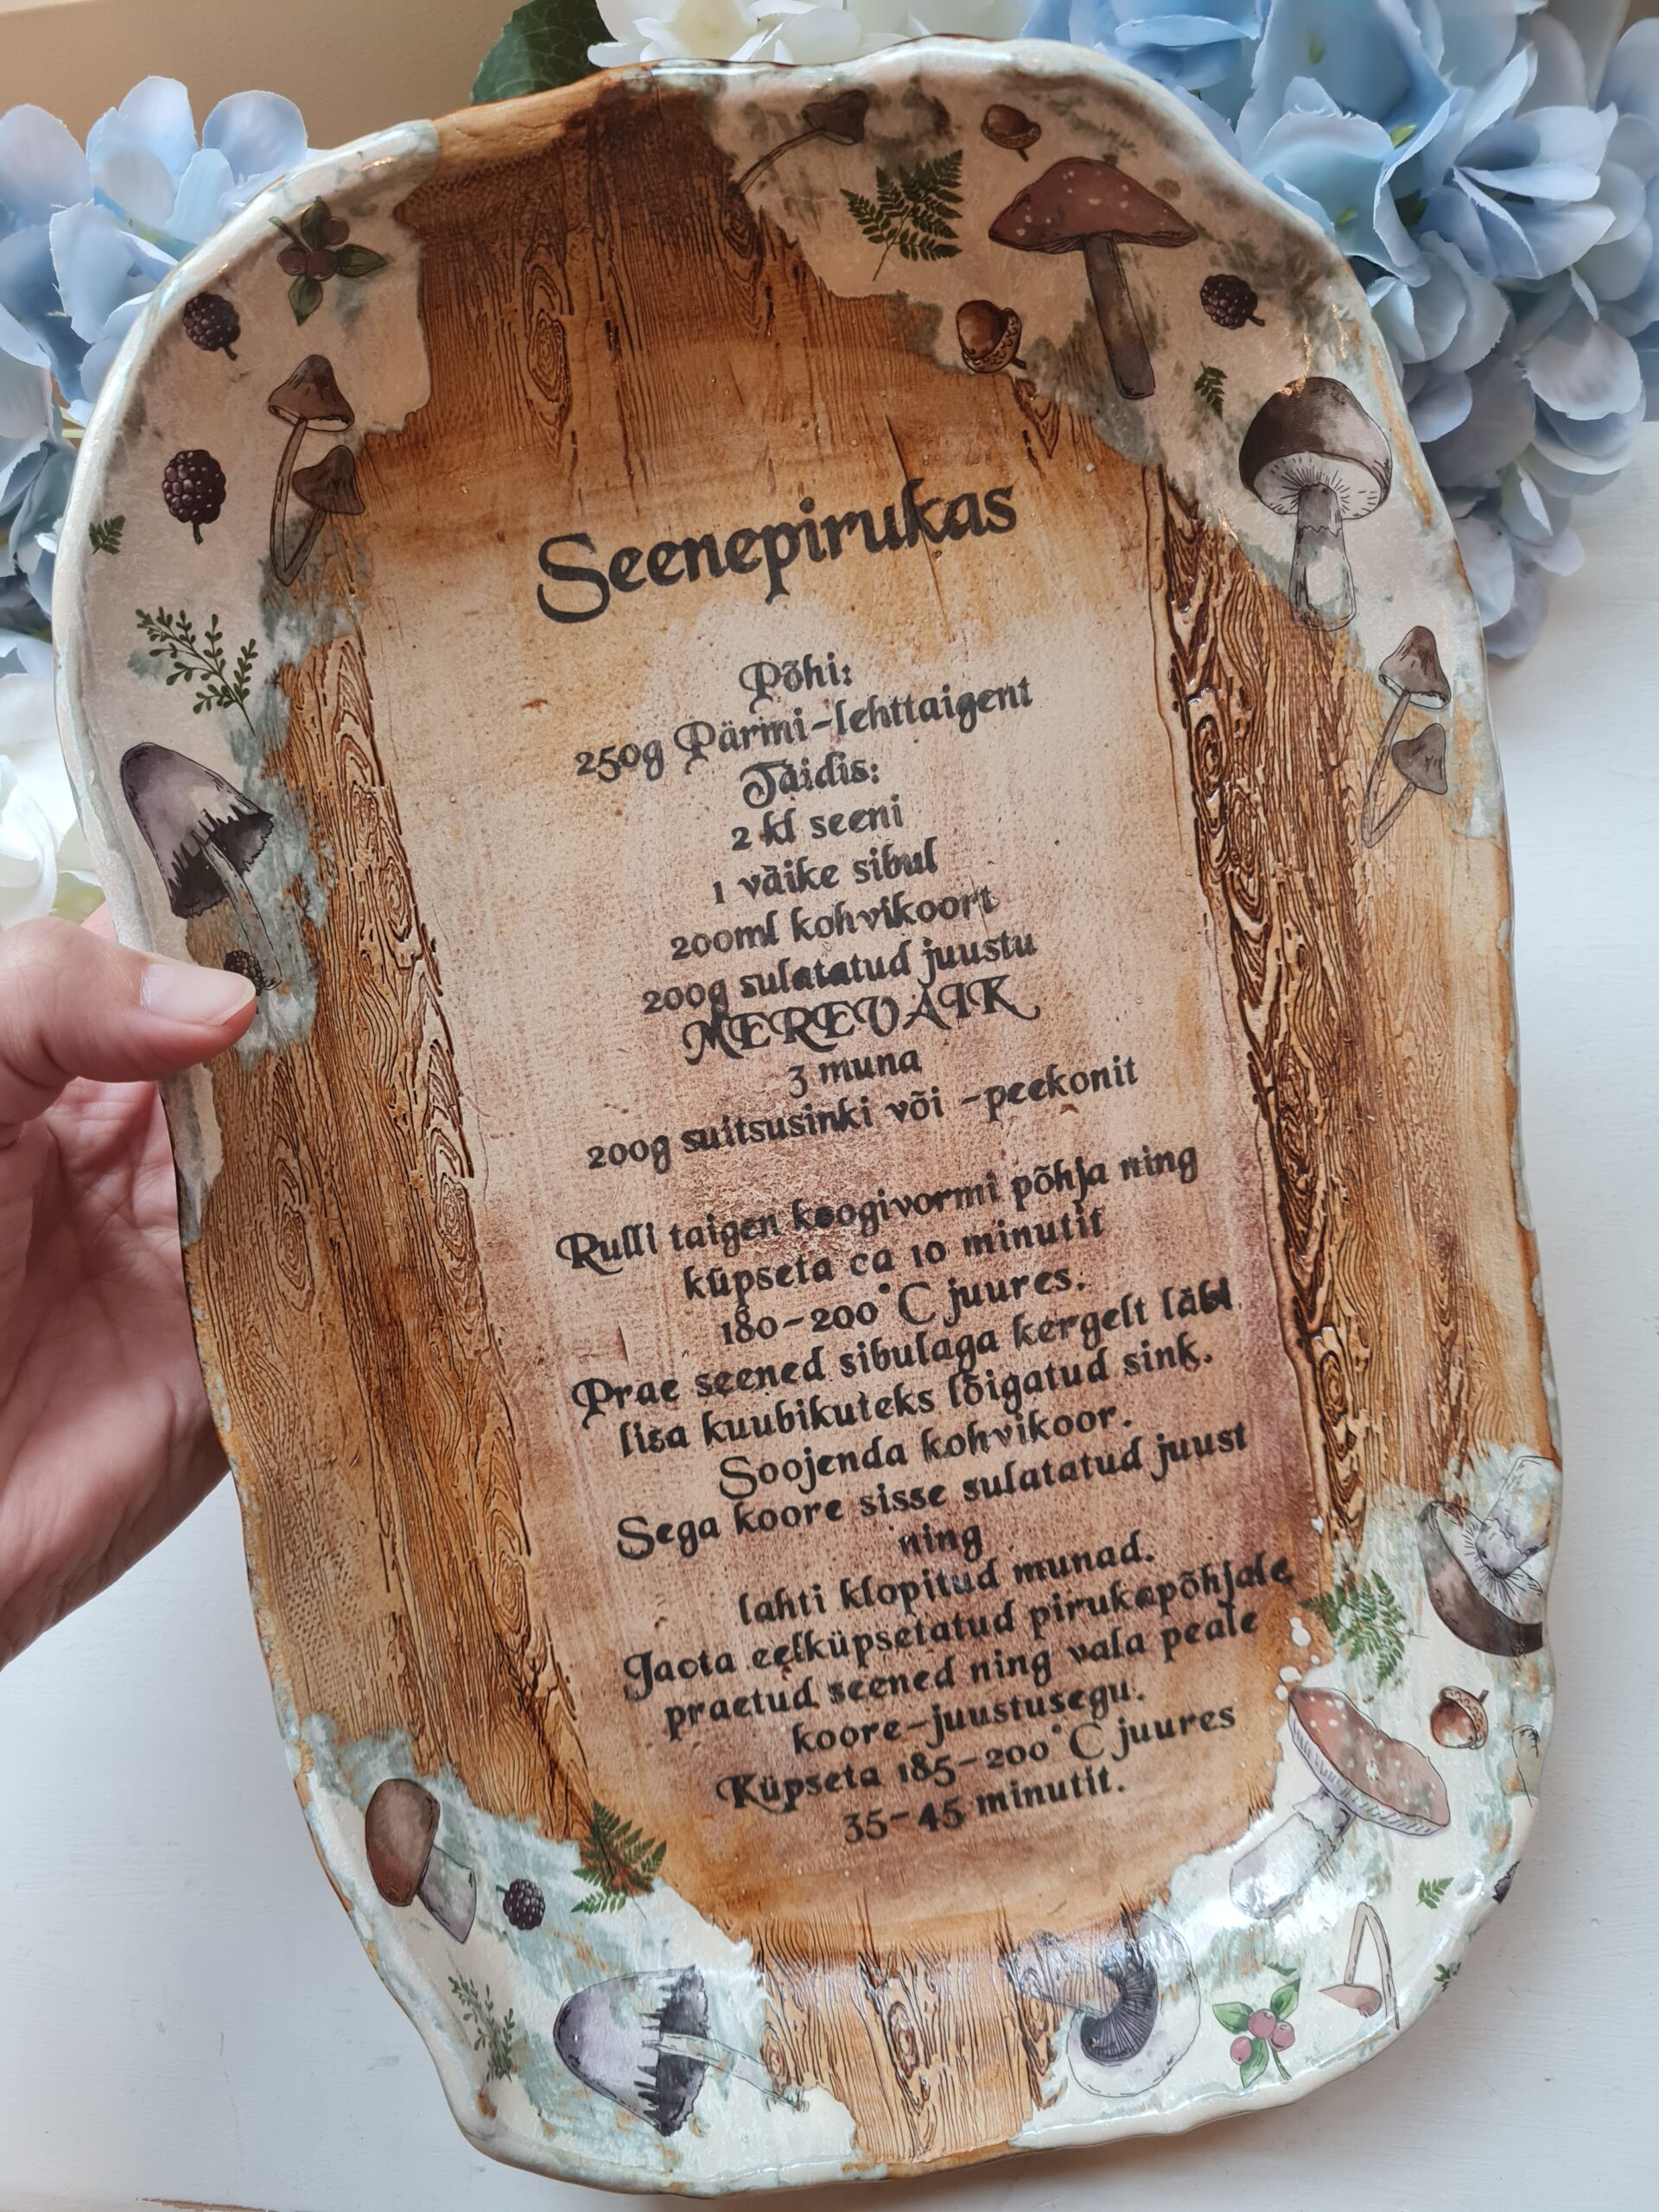 Seenepirukas
Põhi:
250g Pärmi-lehttaigent
Täidis:
2 kl seeni
1 väike sibul
200ml kohvikoort
200g sulatatud juustu
MEREVAIK
3 muna
200g suitsusinki või -peekonit
Rulli taigen koogivormi põhja ning
küpseta ca 10 minutit
180-200°C juures.
Prae seened sibulaga kergelt läbi
lisa kuubikuteks lõigatud sink.
Soojenda kohvikoor.
Sega koore sisse sulatatud juust
ning
lahti klopitud munad.
Jaota eelküpsetatud pirukapõhjale
praetud seened ning vala peale
koore-juustusegu.
Küpseta 185-200°C juures
35-45 minutit.